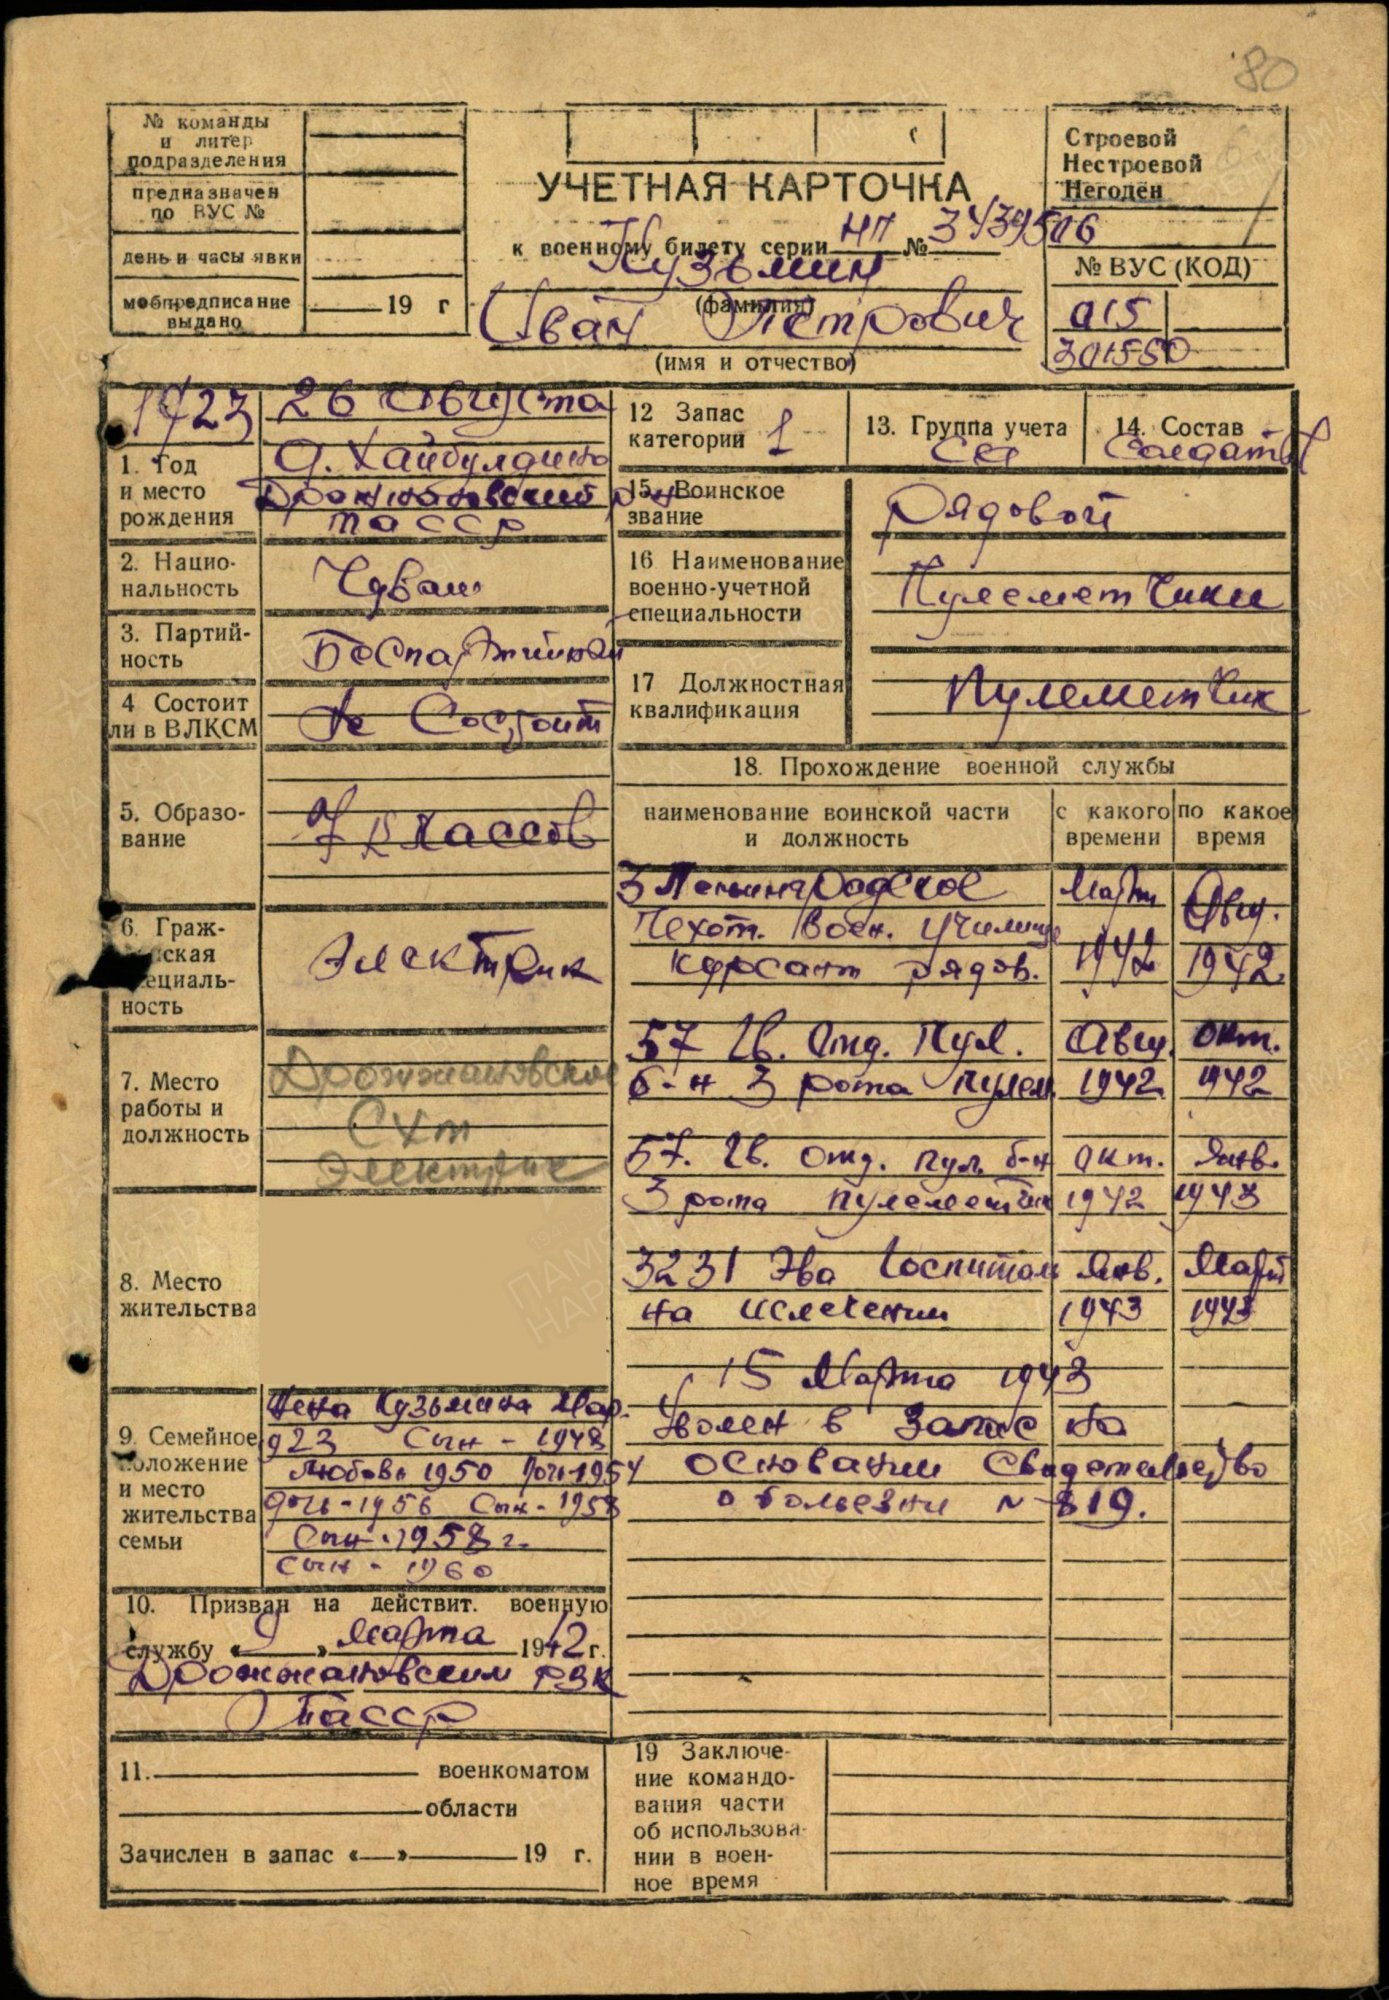 80
№ команды
и литер
подразделения
предназначен
по ВУС №
день и часы явки
мобпредписание
выдано
19 г
УЧЕТНАЯ КАРТОЧКА
к военному билету серии НП № 3439506
Кузьмин
(фамилия)
Иван Петрович
(имя и отчество)
Строевой
Нестроевой
Негоден
№ ВУС (КОД)
015
301550
1923
26 Августа
1. Год
и место
рождения
д. Хайбулдино
Дрожжановский р-н
ТАССР
2. Нацио-
нальность
Чуваш
3. Партий-
ность
Беспартийный
4 Состоит
ли в ВЛКСМ
Не Состоит
5. Образо-
вание
7 классов
6. Граж-
нская
ециаль-
ность
Электрик
7. Место
работы и
должность
Дрожжановское
Схт
Электрик
8. Место
жительства
9. Семейное
положение
и место
жительства
семьи
Жена Кузьмина Мар.
923 Сын - 1948
Любовь 1950 Дочь-1954
дочь-1956 Сын-1958
Сын-1958 г.
Сын - 1960
10. Призван на действит. военную
службу « 9 » Марта 1942 г.
Дрожжановским РВК
ТАССР
11. военкоматом
области
Зачислен в запас « » 19 г.
12 Запас
категории 1
13. Группа учета
СА
14. Состав
Солдаты
15. Воинское
звание
Рядовой
16 Наименование
военно-учетной
специальности
Пулеметчики
17 Должностная
квалификация
Пулеметчик
18. Прохождение военной службы
наименование воинской части
и должность
с какого
времени
по какое
время
3 Ленинградское Март Авг.
Пехот. воен. училище
курсант рядов. 1942 1942.
57 Гв. Отд. Пул. Авгу. окт.
б-н 3 рота пулем. 1942 1942
57. Гв. отд. пул. б-н окт. Янв.
3 рота пулеметчик 1942 1943
3231 Эва Госпиталь Янв. Март
на излечении 1943 1943
15 Марта 1943
Уволен в Запас на
основании Свидетельство
о болезни №819.
19 Заключе-
ние командо-
вания части
об использова-
нии в воен-
ное время